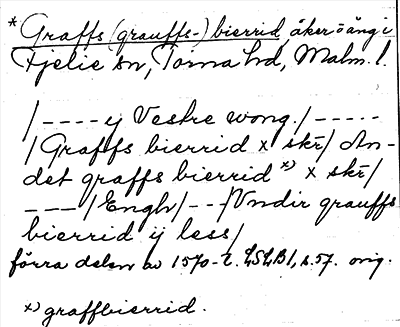 * Graffs (grauffs-) bierrid, åker o äng i
Fjelie sn, Torna hd, Malm. l.
/---- ij Vestre wong./-----
/Graffs bierrid x skr/ An-
det graffs bierrid x) x skr/
---/Engh/--/Vndir grauffs
bierrid ij less/
förra delen av 1570-t. LSLB1, s.57. orig.
x) graffbierrid.